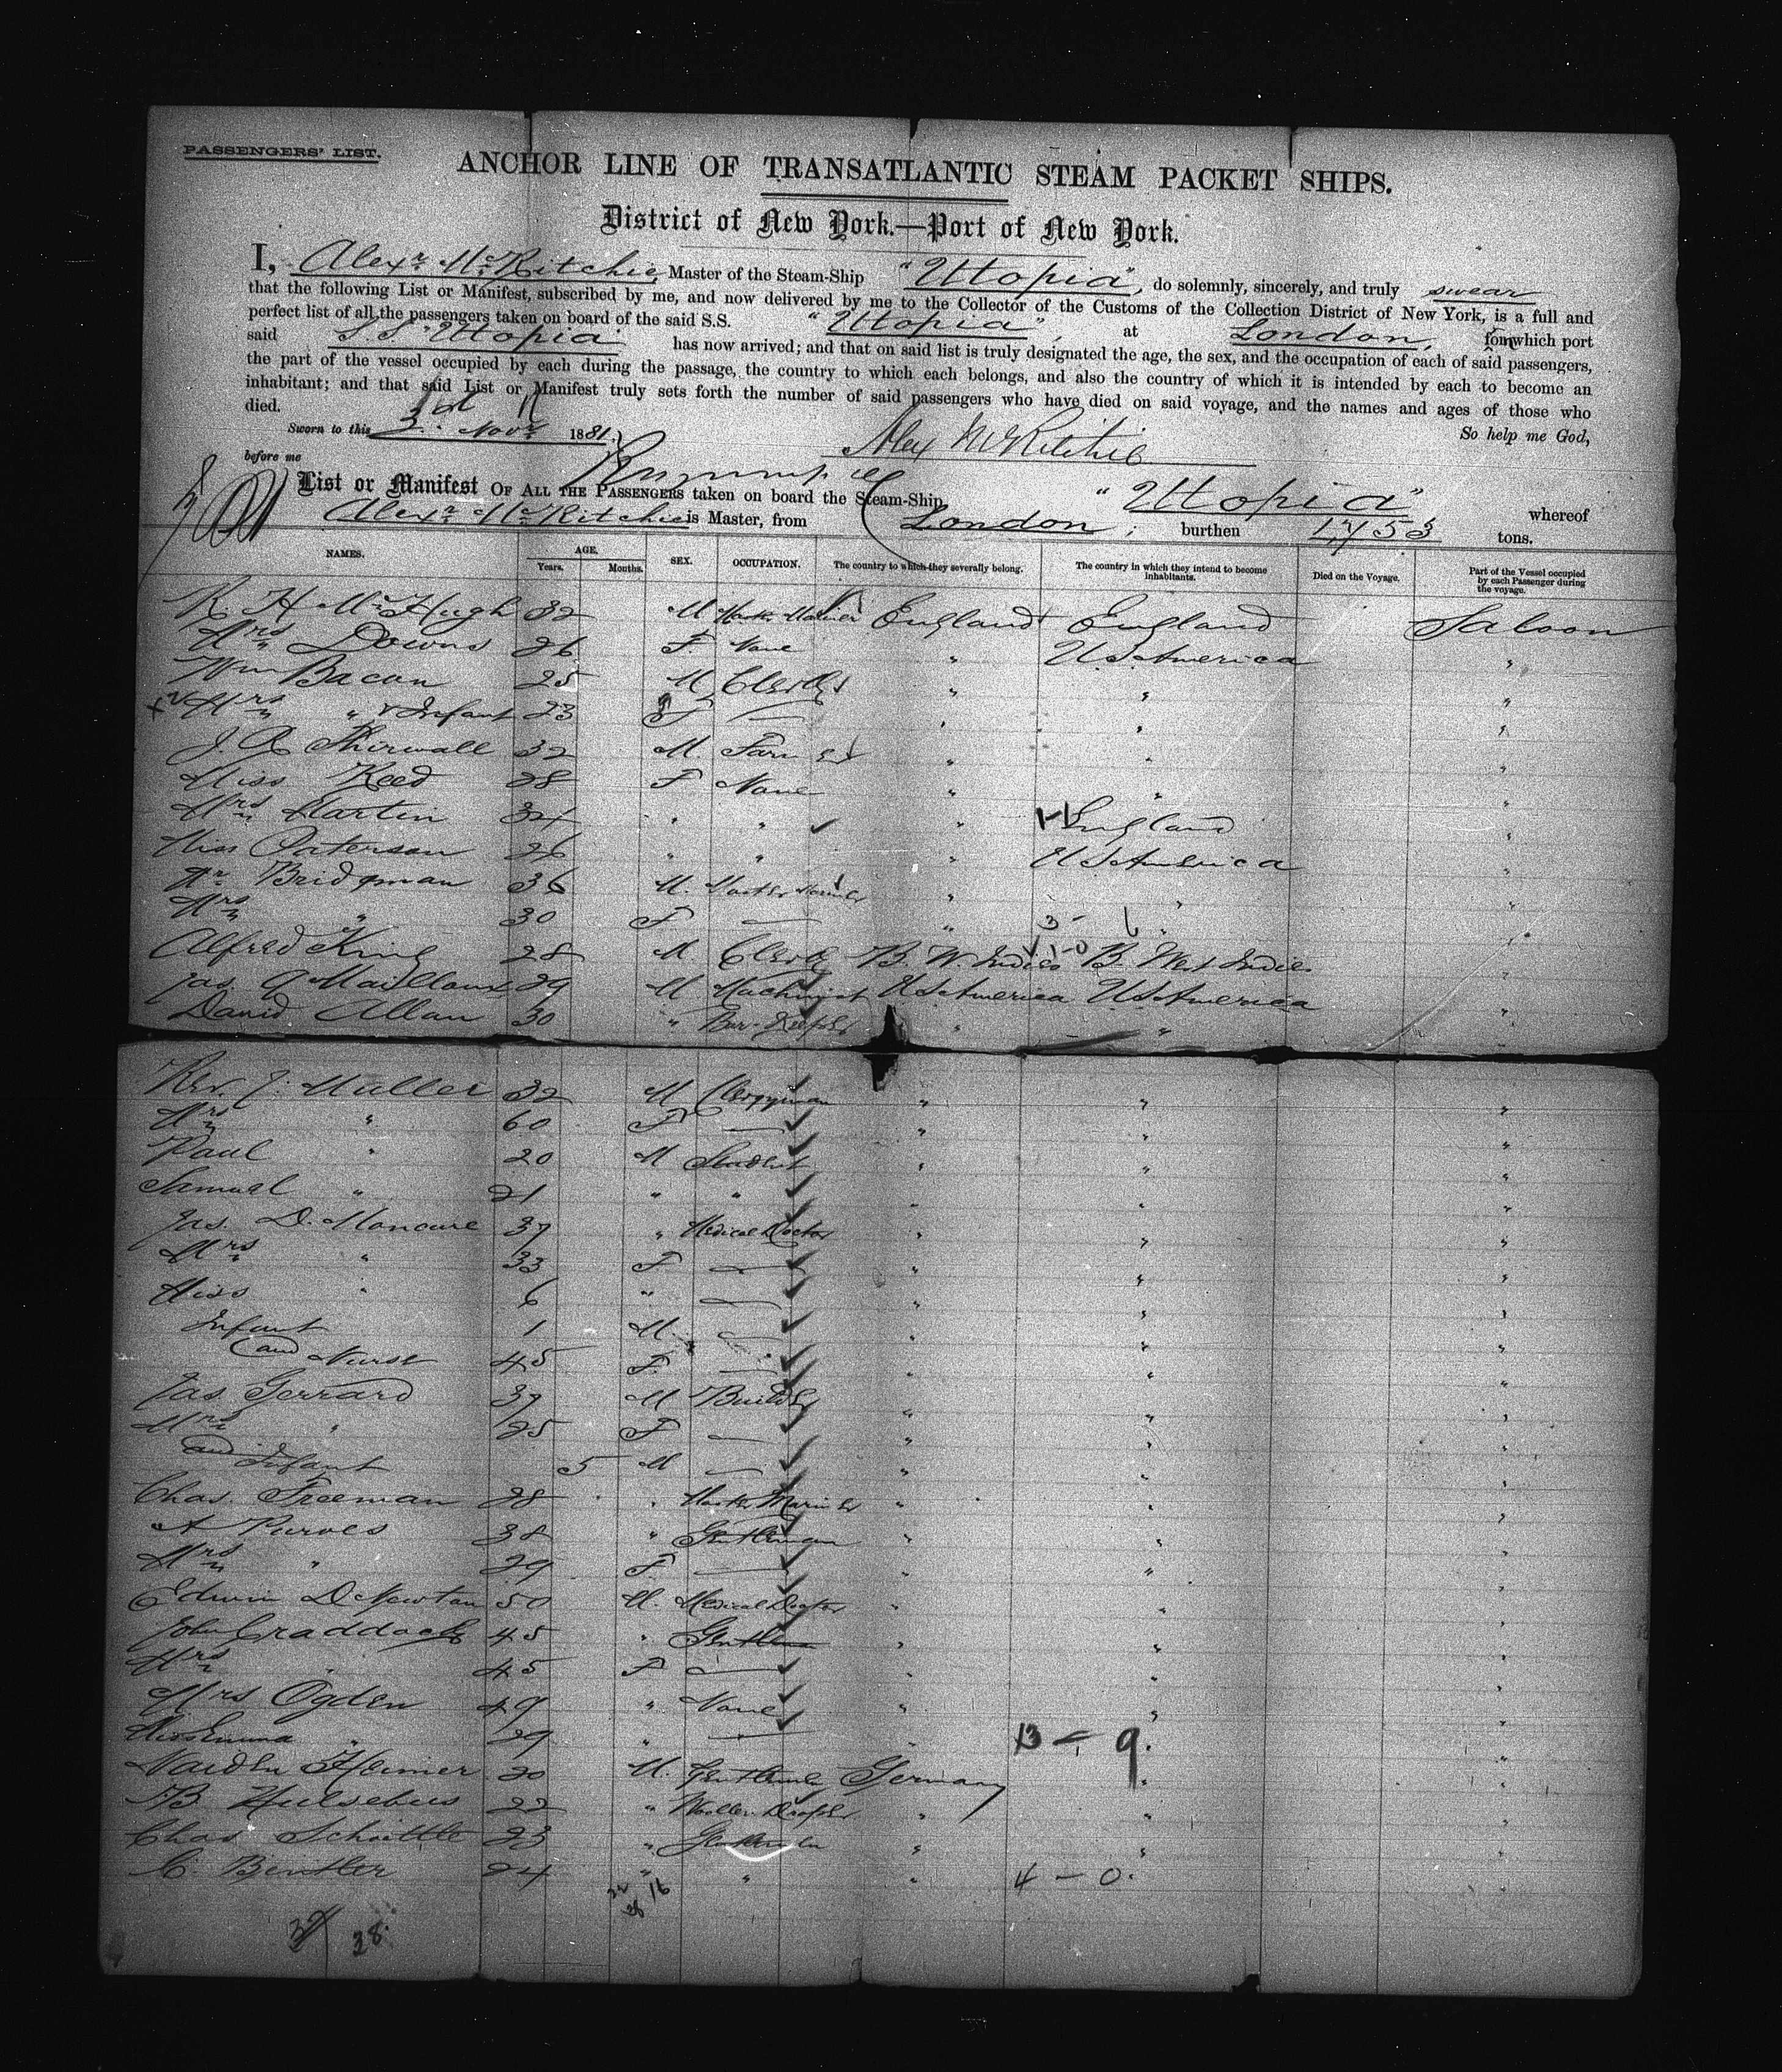 PASSENGERS' LIST.
ANCHOR LINE OF TRANSATLANTIC STEAM PACKET SHIPS.
District of New York.—Port of New York.
I, Alexr. McRitchie, Master of the Steam-Ship "Utopia", do solemnly, sincerely, and truly swear
that the following List or Manifest, subscribed by me, and now delivered by me to the Collector of the Customs of the Collection District of New York, is a full and
perfect list of all the passengers taken on board of the said S.S. "Utopia", at London, from which port
said S.S. "Utopia" has now arrived; and that on said list is truly designated the age, the sex, and the occupation of each of said passengers,
the part of the vessel occupied by each during the passage, the country to which each belongs, and also the country of which it is intended by each to become an
inhabitant; and that said List or Manifest truly sets forth the number of said passengers who have died on said voyage, and the names and ages of those who
died. So help me God,
Sworn to this 3d Novr 1881. Alex McRitchie
before me
List or Manifest OF ALL THE PASSENGERS taken on board the Steam-Ship "Utopia" whereof
Alexr. McRitchie is Master, from London; burthen 1,753 tons.
NAMES. AGE. Years. Months. SEX. OCCUPATION. The country to which they severally belong. The country in which they intend to become inhabitants. Died on the Voyage. Part of the Vessel occupied by each Passenger during the voyage.
R. H. McHugh 32 M Master Mariner England England Saloon
Mrs Downs 26 F. None " U.S. America "
Wm Bacon 25 M Clerk " " "
Mrs " & Infant 23 F — " " "
J. R. Thirwall 32 M Farmer " " "
Miss Reed 28 F None " " "
Mrs Martin 34 " " " England "
Miss Paterson 26 " " " U.S. America "
Mr. Bridgman 36 M. Master Mariner " " "
Mrs " 30 F — " 3 - " "
Alfred King 28 M. Clerk B. W. Indies 1-0 B. West Indies "
Jas. A Mailloux 29 M. Machinist U.S. America U.S. America "
David Allan 30 " Bar-Keeper " " "
Rev. J. Muller 32 M Clergyman " " "
Mrs " 60 F — " " "
Paul " 20 M Student " " "
Samuel " 21 " " " " "
Jas. D. Moncure 37 " Medical Doctor " " "
Mrs " 33 F — " " "
Miss " 6 " — " " "
Infant 1 M. — " " "
and Nurse 45 F. — " " "
Jas Gerrard 37 M Builder " " "
Mrs " 25 F — " " "
and Infant 5 M — " " "
Chas. Freeman 28 " Master Mariner " " "
A Purves 38 " Gentleman " " "
Mrs " 29 F. — " " "
Edwin D. Newton 50 M. Medical Doctor " " "
John Craddock 45 " Gentleman " " "
Mrs " 45 F — " " "
Mrs Ogden 49 " None " " "
Miss Emma " 29 " — " 13 - 9. "
20 M. Gentleman Germany " "
B Hulsebus 22 " Woollen Draper " " "
Chas Schuttle 23 " Gentleman " " "
C. Bentler 24 " " " 4 - 0.
16
38